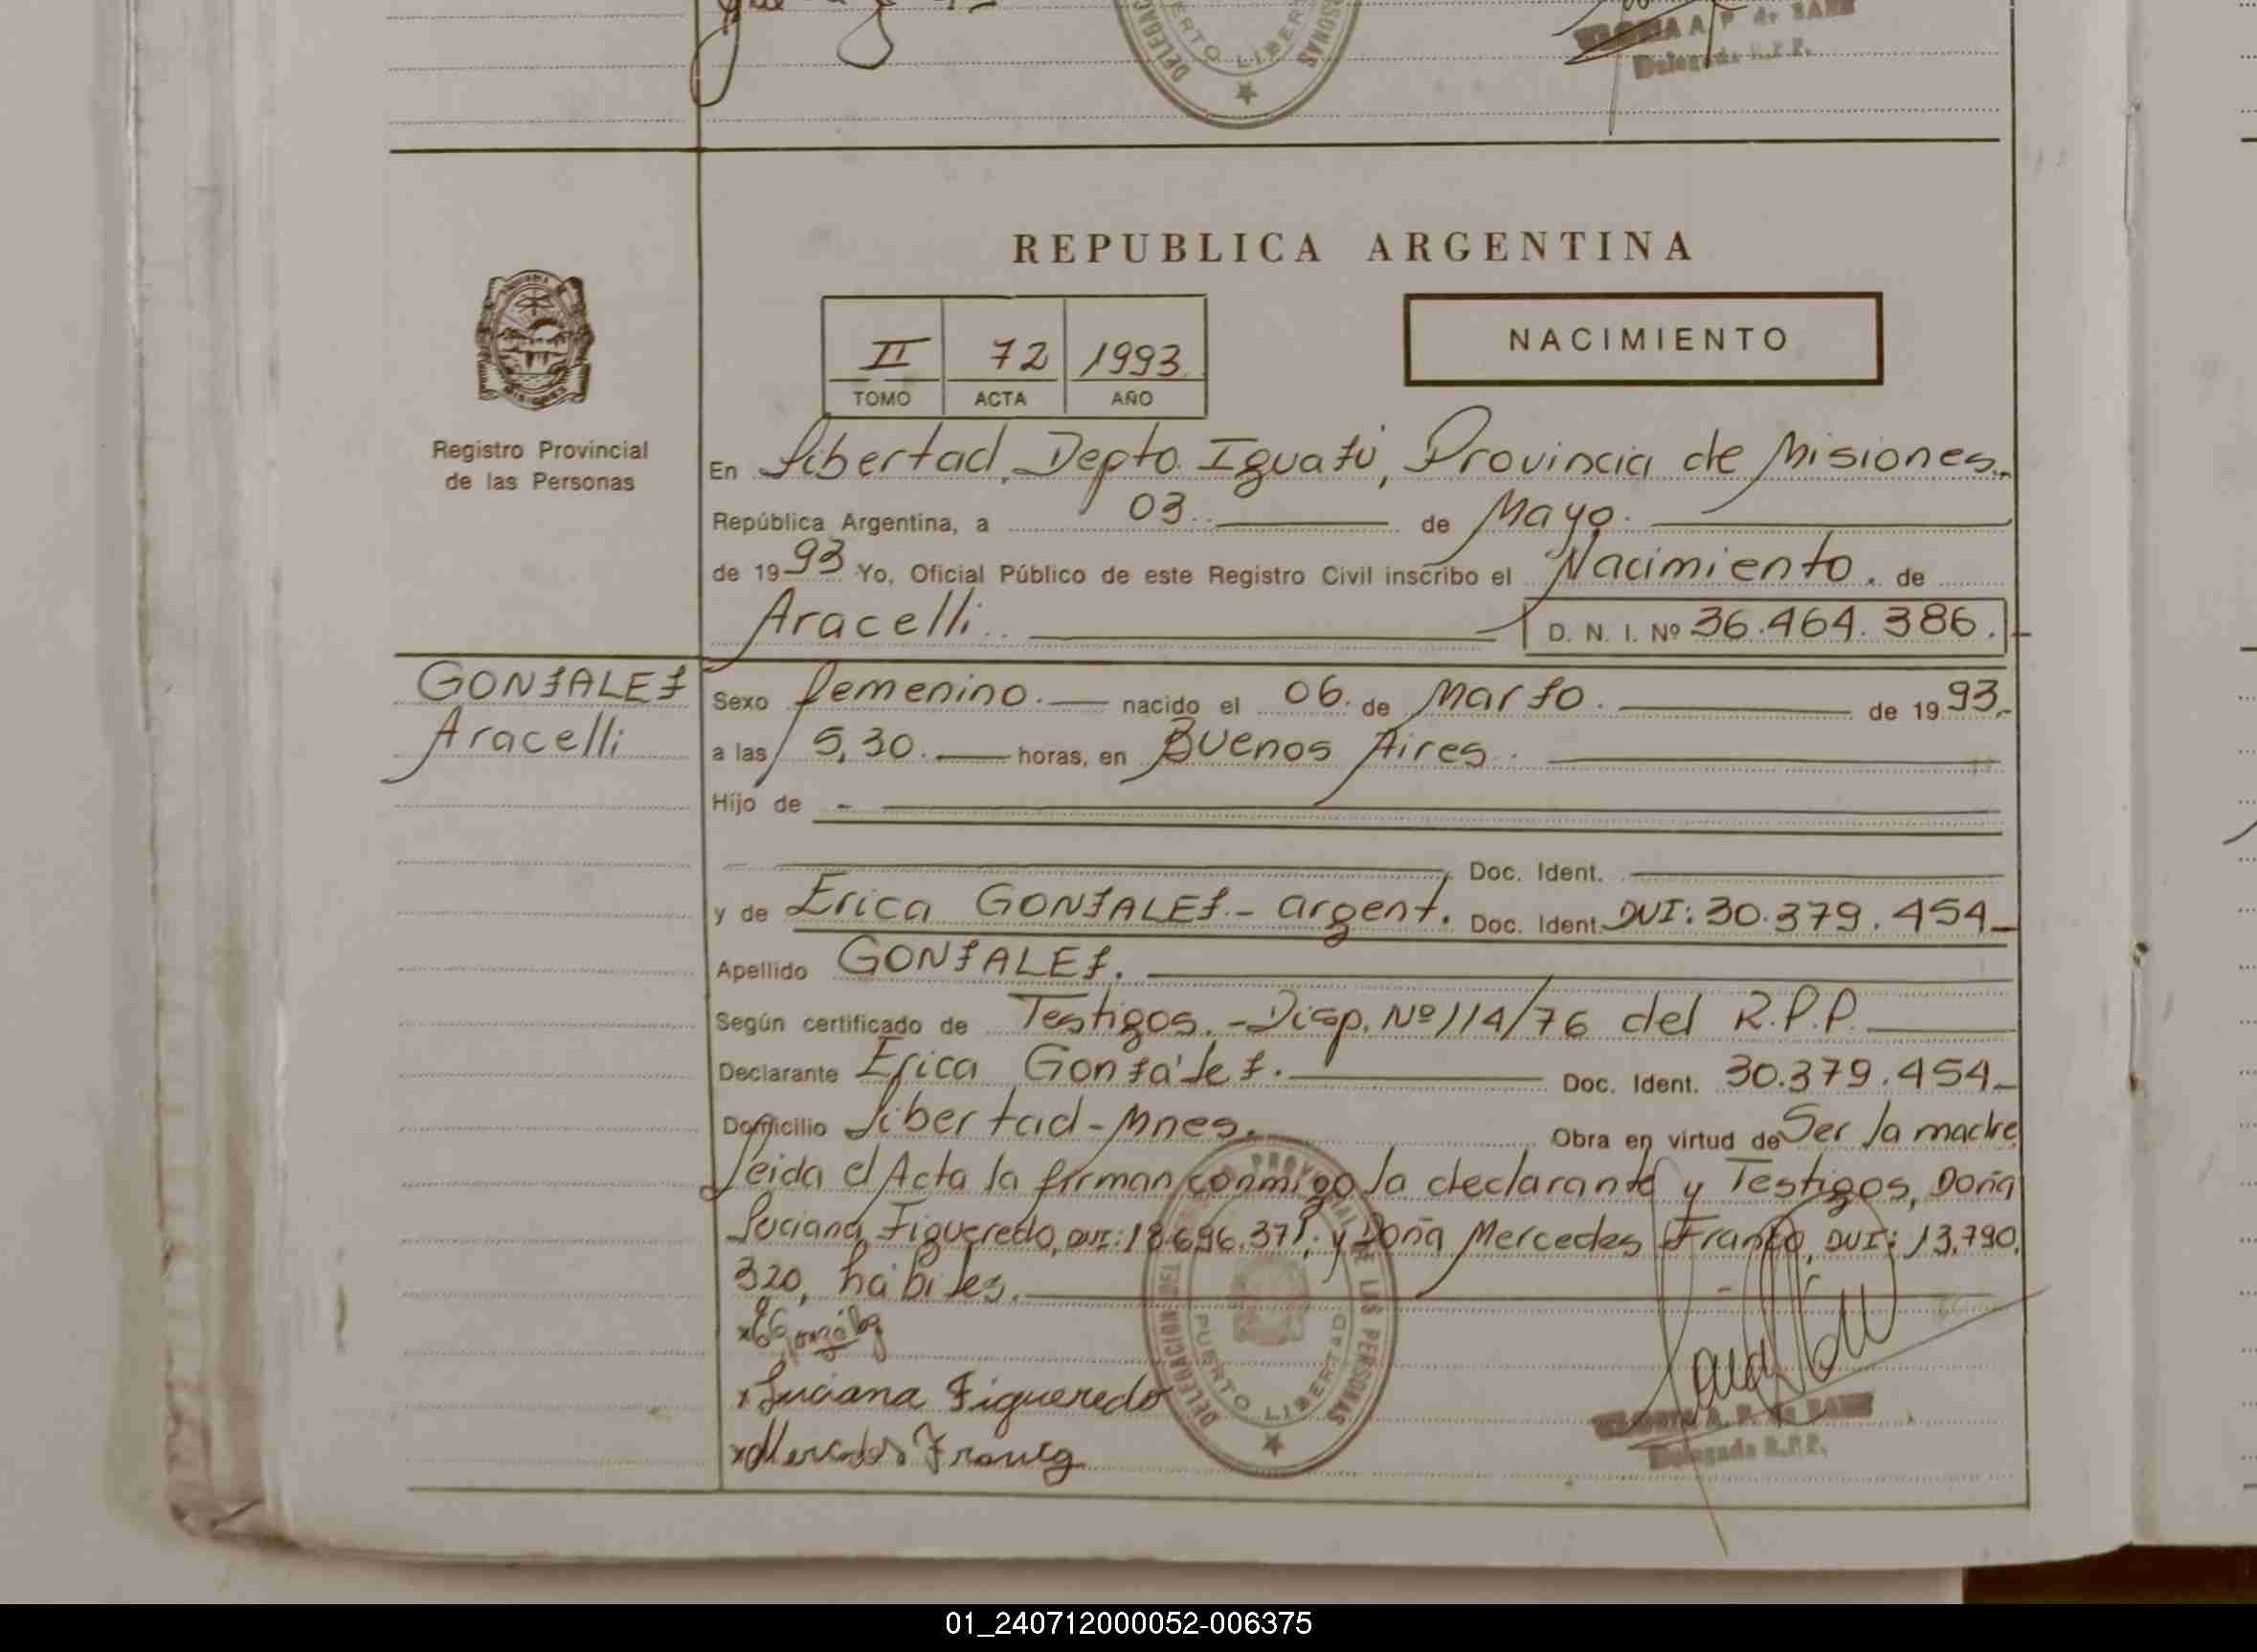 DELEGAC
ERTO LIBER
SONAS
A. P. de SAEZ
Delegada R.P.P.
REPUBLICA ARGENTINA
II 72 1993
TOMO ACTA AÑO
NACIMIENTO
Registro Provincial
de las Personas
En Libertad, Depto. Iguazú, Provincia de Misiones.
República Argentina, a 03. de Mayo.
de 1993 Yo, Oficial Público de este Registro Civil inscribo el Nacimiento. de
Aracelli. D. N. I. Nº 36.464.386.
GONZALEZ
Aracelli
Sexo femenino. nacido el 06. de Marzo. de 1993.
a las 5,30. horas, en Buenos Aires.
Hijo de
Doc. Ident.
y de Erica GONZALEZ.- argent. Doc. Ident. DUI: 30.379.454
Apellido GONZALEZ.
Según certificado de Testigos.-Disp. Nº 114/76 del R.P.P.
Declarante Erica González. Doc. Ident. 30.379.454
Domicilio Libertad-Mnes. Obra en virtud de Ser la madre
Leida el Acta la firman conmigo la declarante y Testigos, Doña
Luciana Figueredo, DUI: 18.696.371; y Doña Mercedes Franco, DUI: 13.790.
320, hábiles.
Luciana Figueredo
Mercedes Franco
DELEGACION DEL REGISTRO PROVINCIAL DE LAS PERSONAS
PUERTO LIBERTAD
A. P. de SAEZ
Delegada R.P.P.
01_240712000052-006375